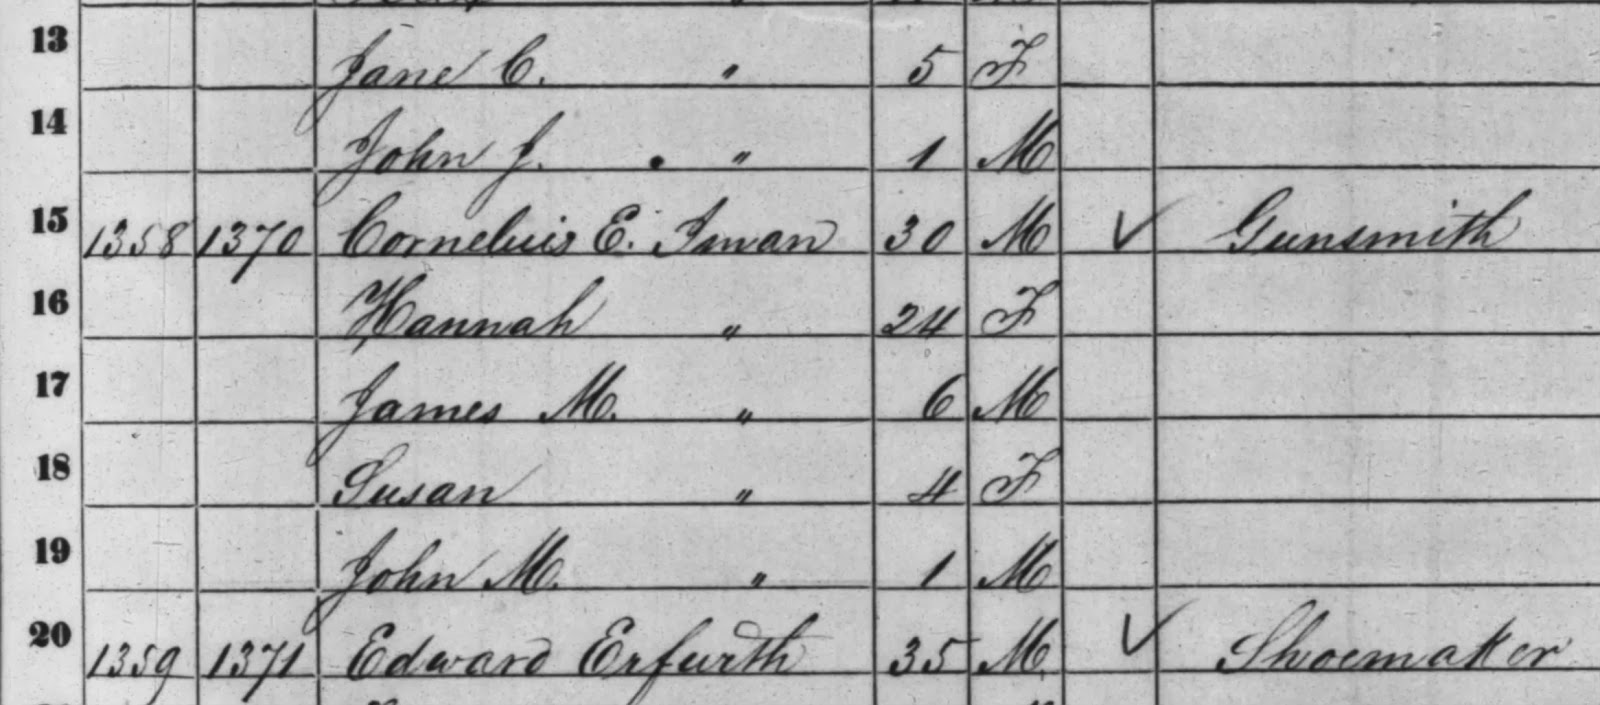 13 Jane C. " 5 F
14 John J. " 1 M
15 1358 1370 Cornelius E. Iman 30 M ✓ Gunsmith
16 Hannah " 24 F
17 James M. " 6 M
18 Susan " 4 F
19 John M. " 1 M
20 1359 1371 Edward Erfurth 35 M ✓ Shoemaker